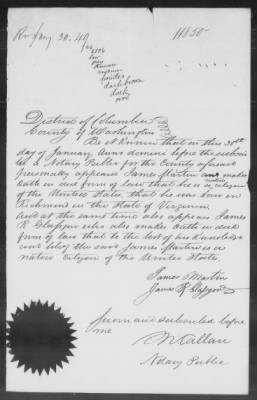 11850
District of Columbia
County of Washington
Be it known that on this 30th
day of January Anno Domini before the subscri
a Notary Public for the County aforesaid
personally appears James Martin and makes
oath in due form of law that he is a native citizen
of the United States, that he was born in
Richmond in the State of Virginia
And at the same time also appears James
R. Glasgow who also makes oath in due
form of law that to the best of his knowledge
and belief the said James Martin is a
native citizen of the United States.
James Martin
James R Glasgow
sworn and subscribed before
me
N Callan
Notary Public